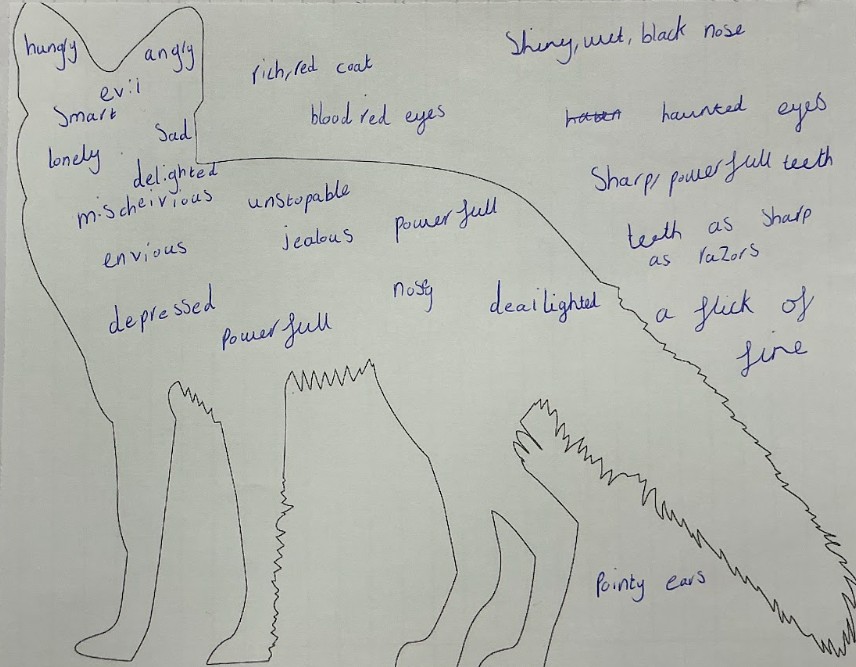 hungry angry
evil
Smart
Sad
lonely
delighted
mischeivious
envious
depressed
unstopable
jealous
powerfull
Powerfull
nosy
deailighted
rich, red coat
blood red eyes
Shiny, wet, black nose
haunted eyes
Sharp, powerfull teeth
teeth as sharp
as razors
a flick of
fire
Pointy ears